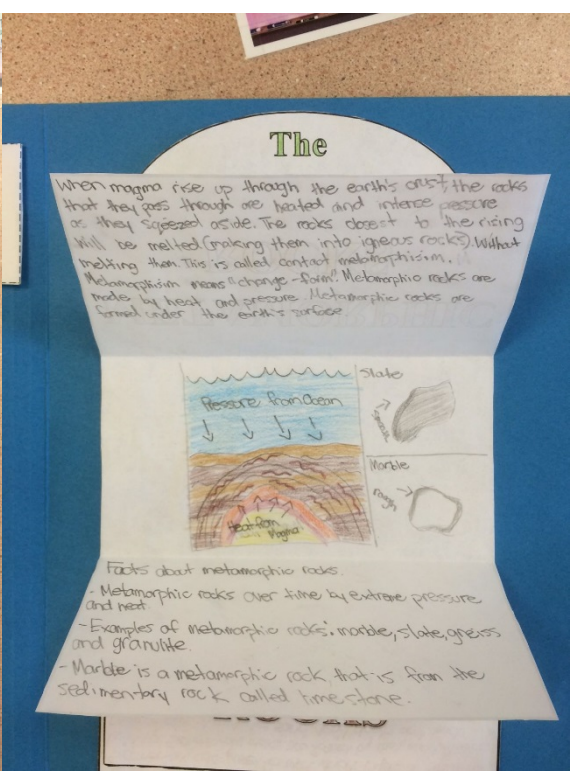 The
When magma rise up through the earth's crust, the rocks
that they pass through are heated and intence pessure
as they sqeezed aside. The rocks closest to the rising
Will be melted (making them into igneous rocks). Without
melting them. This is called contact metamorphisim.
Metamorphisim means "change-form". Metamorphic rocks are
made by heat and pressure. Metamorphic rocks are
formed under the earth's surface.
Pressure from Ocean
Heat from
Magma
Slate
smooth
Marble
rough
Facts about metamorphic rocks.
- Metamorphic rocks over time by extreme pressure
and heat.
- Examples of metamorphic rocks: marble, slate, gneiss
and granulite.
- Marble is a metamorphic rock that is from the
sedimentary rock called limestone.